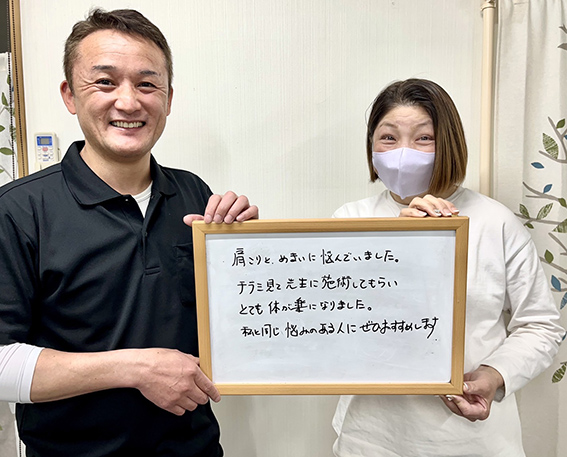 肩こりと、めまいに悩んでいました。
チラミ見て先生に施術してもらい
とても体が楽になりました。
私と同じ悩みのある人にぜひおすすめします